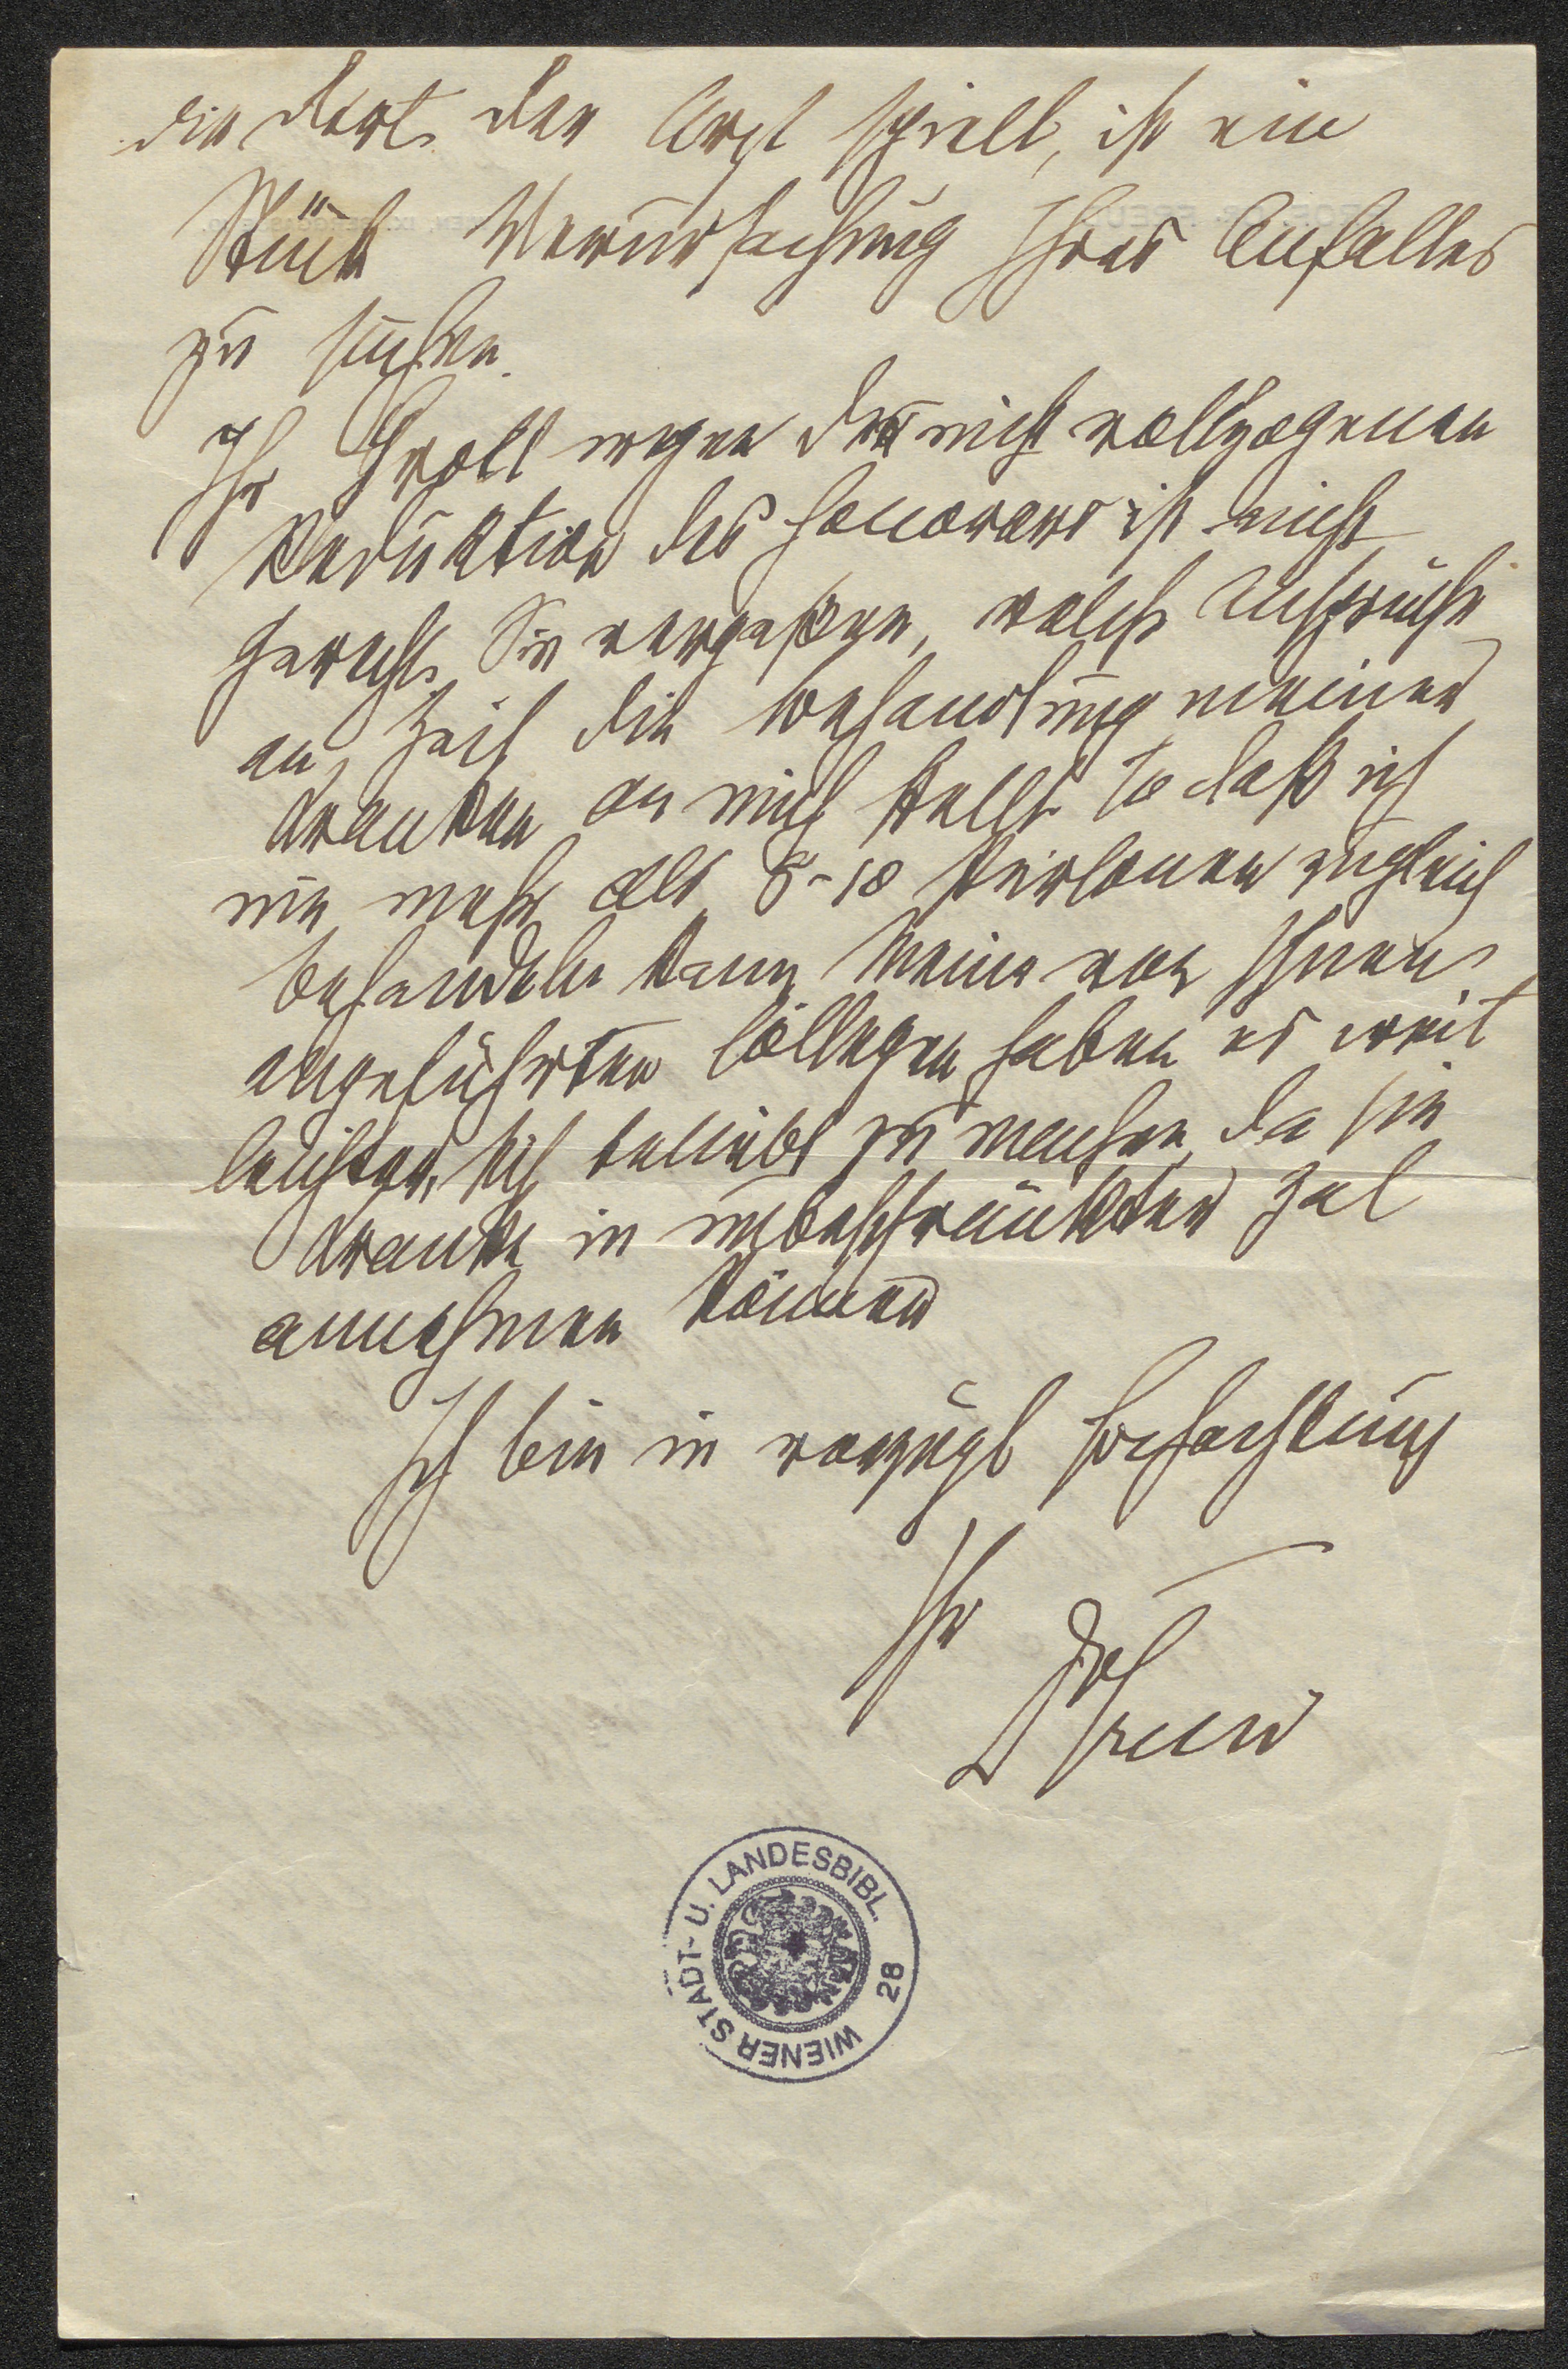 die dort der Arzt spielt, ist ein
Stück Verursachung Ihres Anfalles
zu suchen.
Ihr Groll wegen der nicht vollzogenen
Reduktion des Honorars ist nicht
gerecht. Sie vergaßen, welche Ansprüche
an Zeit die Behandlung meiner
Kranken an mich stellt so daß ich
nie mehr als 8-10 Personen zugleich
behandeln kann Meine von Ihnen
angeführten Collegen haben es weit
leichter, sich beliebt zu machen, da sie
Kranke in unbeschränkter Zal
annehmen können
Ich bin in vorzügl Hochachtung
Ihr
Dr Freud
WIENER STADT- U. LANDESBIBL.
28